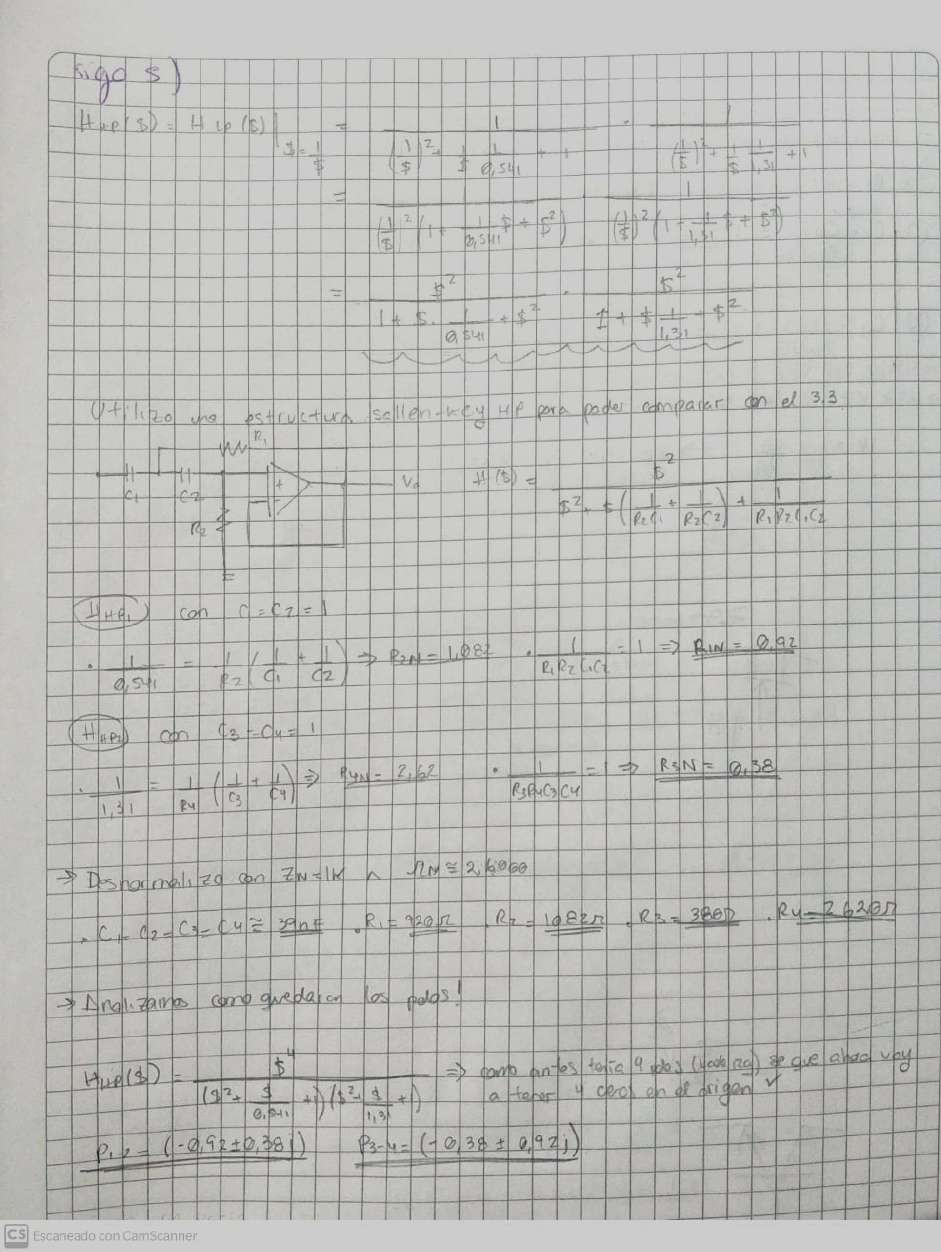 sigo s)
H_HP($) = H_LP($) |_{$ = 1/$} = 1 / ((1/$)² + 1/$ 1/0,541 + 1) · 1 / ((1/$)² + 1/$ 1/1,31 + 1)
= 1 / ((1/$)² (1 + 1/0,541 $ + $²)) 1 / ((1/$)² (1 + 1/1,31 $ + $²))
= $² / (1 + $ · 1/0,541 + $²) · $² / (1 + $ 1/1,31 + $²)
Utilizo una estructura sallen-key HP para poder comparar con el 3.3
R1
C1 C2 R2 + - Vo H($) = $² / ($² + $ (1/R2C1 + 1/R2C2) + 1/R1R2C1C2)
H_HP1 con C1 = C2 = 1
· 1/0,541 = 1/R2 (1/C1 + 1/C2) => R2N = 1,082 · 1/R1R2C1C2 = 1 => R1N = 0,92
H_HP2 con C3 = C4 = 1
· 1/1,31 = 1/R4 (1/C3 + 1/C4) => R4N = 2,62 · 1/R3R4C3C4 = 1 => R3N = 0,38
→ Desnormalizo con ZN = 1K ∧ ΩN ≅
· C1 = C2 = C3 = C4 ≅ 39nF · R1 = 920Ω · R2 = 1082Ω · R3 = 380Ω · R4 = 2620Ω
→ Analizamos como quedaron los polos!
H_HP($) = $⁴ / (($² + $/0,541 + 1)($² + $/1,31 + 1)) => como antes tenía 4 se que ahora voy
a tener 4 ceros en el origen ✓
P1,2 = (-0,92 ± 0,38j) P3-4 = (-0,38 ± 0,92j)
CS Escaneado con CamScanner